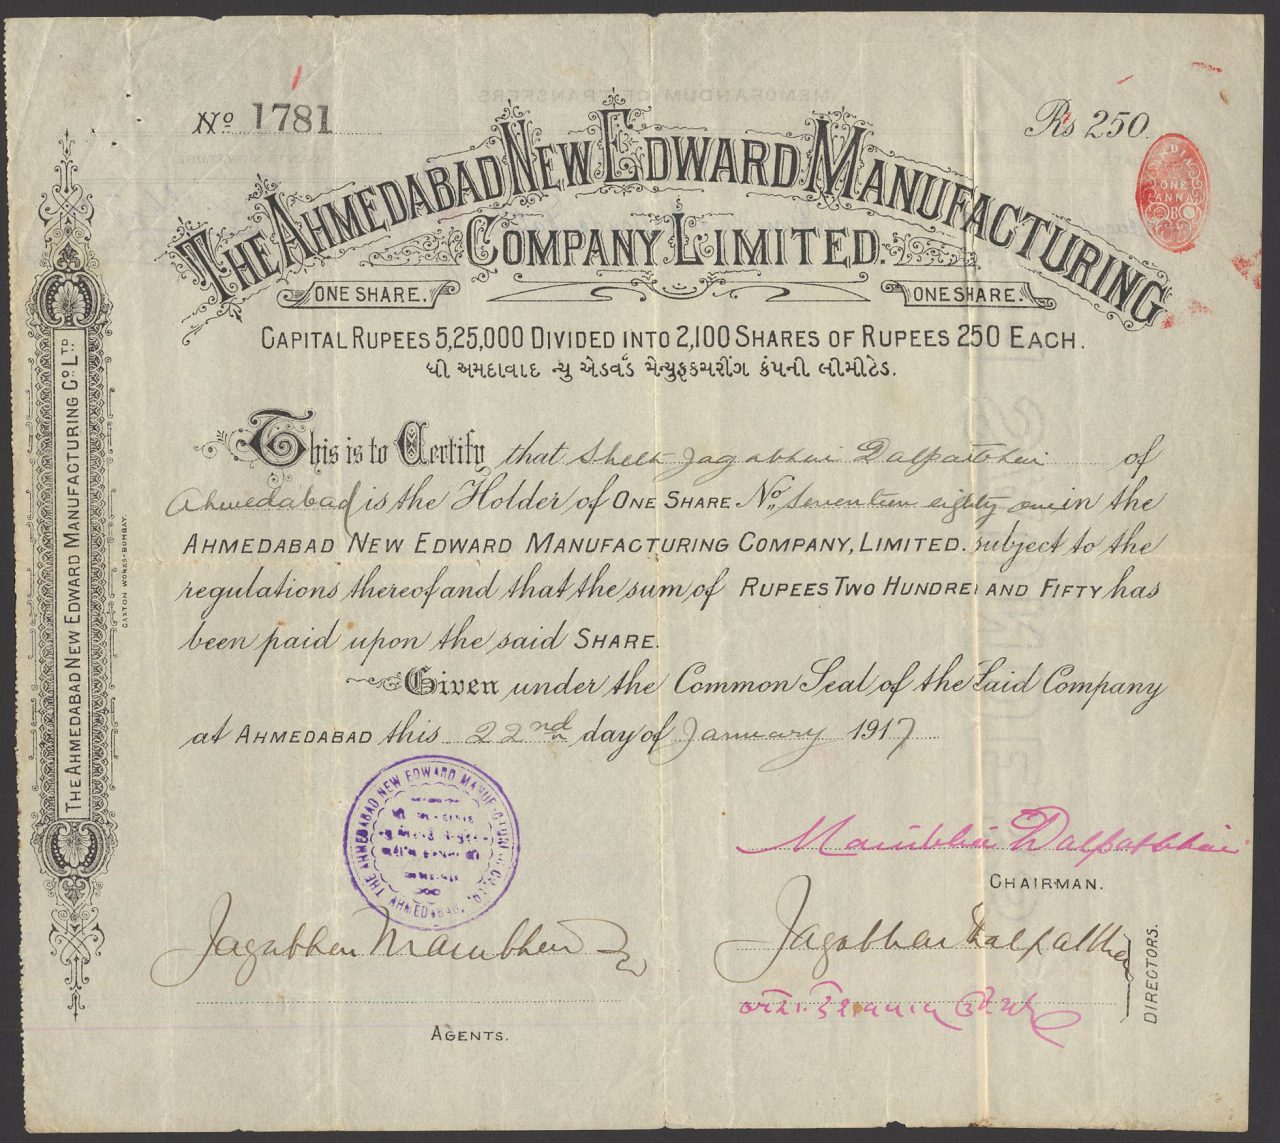 No 1781
Rs 250
INDIA
ONE
ANNA
THE AHMEDABAD NEW EDWARD MANUFACTURING
COMPANY LIMITED.
ONE SHARE.
ONE SHARE.
CAPITAL RUPEES 5,25,000 DIVIDED INTO 2,100 SHARES OF RUPEES 250 EACH.
ધી અમદાવાદ ન્યુ એડવર્ડ મેન્યુફકચરીંગ કંપની લીમીટેડ.
This is to Certify that Sheth Jagabhai Dalpatbhai of
Ahmedabad is the Holder of ONE SHARE No seventeen eighty one in the
AHMEDABAD NEW EDWARD MANUFACTURING COMPANY, LIMITED. subject to the
regulations thereof and that the sum of RUPEES TWO HUNDRED AND FIFTY has
been paid upon the said SHARE.
Given under the Common Seal of the Said Company
at AHMEDABAD this 22nd day of January 1917
THE AHMEDABAD NEW EDWARD MANUFACTURING CO. LTD
CAXTON WORKS-BOMBAY.
THE AHMEDABAD NEW EDWARD MANUFACTURING CO. LTD.
AHMEDABAD.
Manibhai Dalpatbhai
CHAIRMAN.
Jagabhai Manibhai
Jagabhai Dalpatbhai
DIRECTORS.
AGENTS.